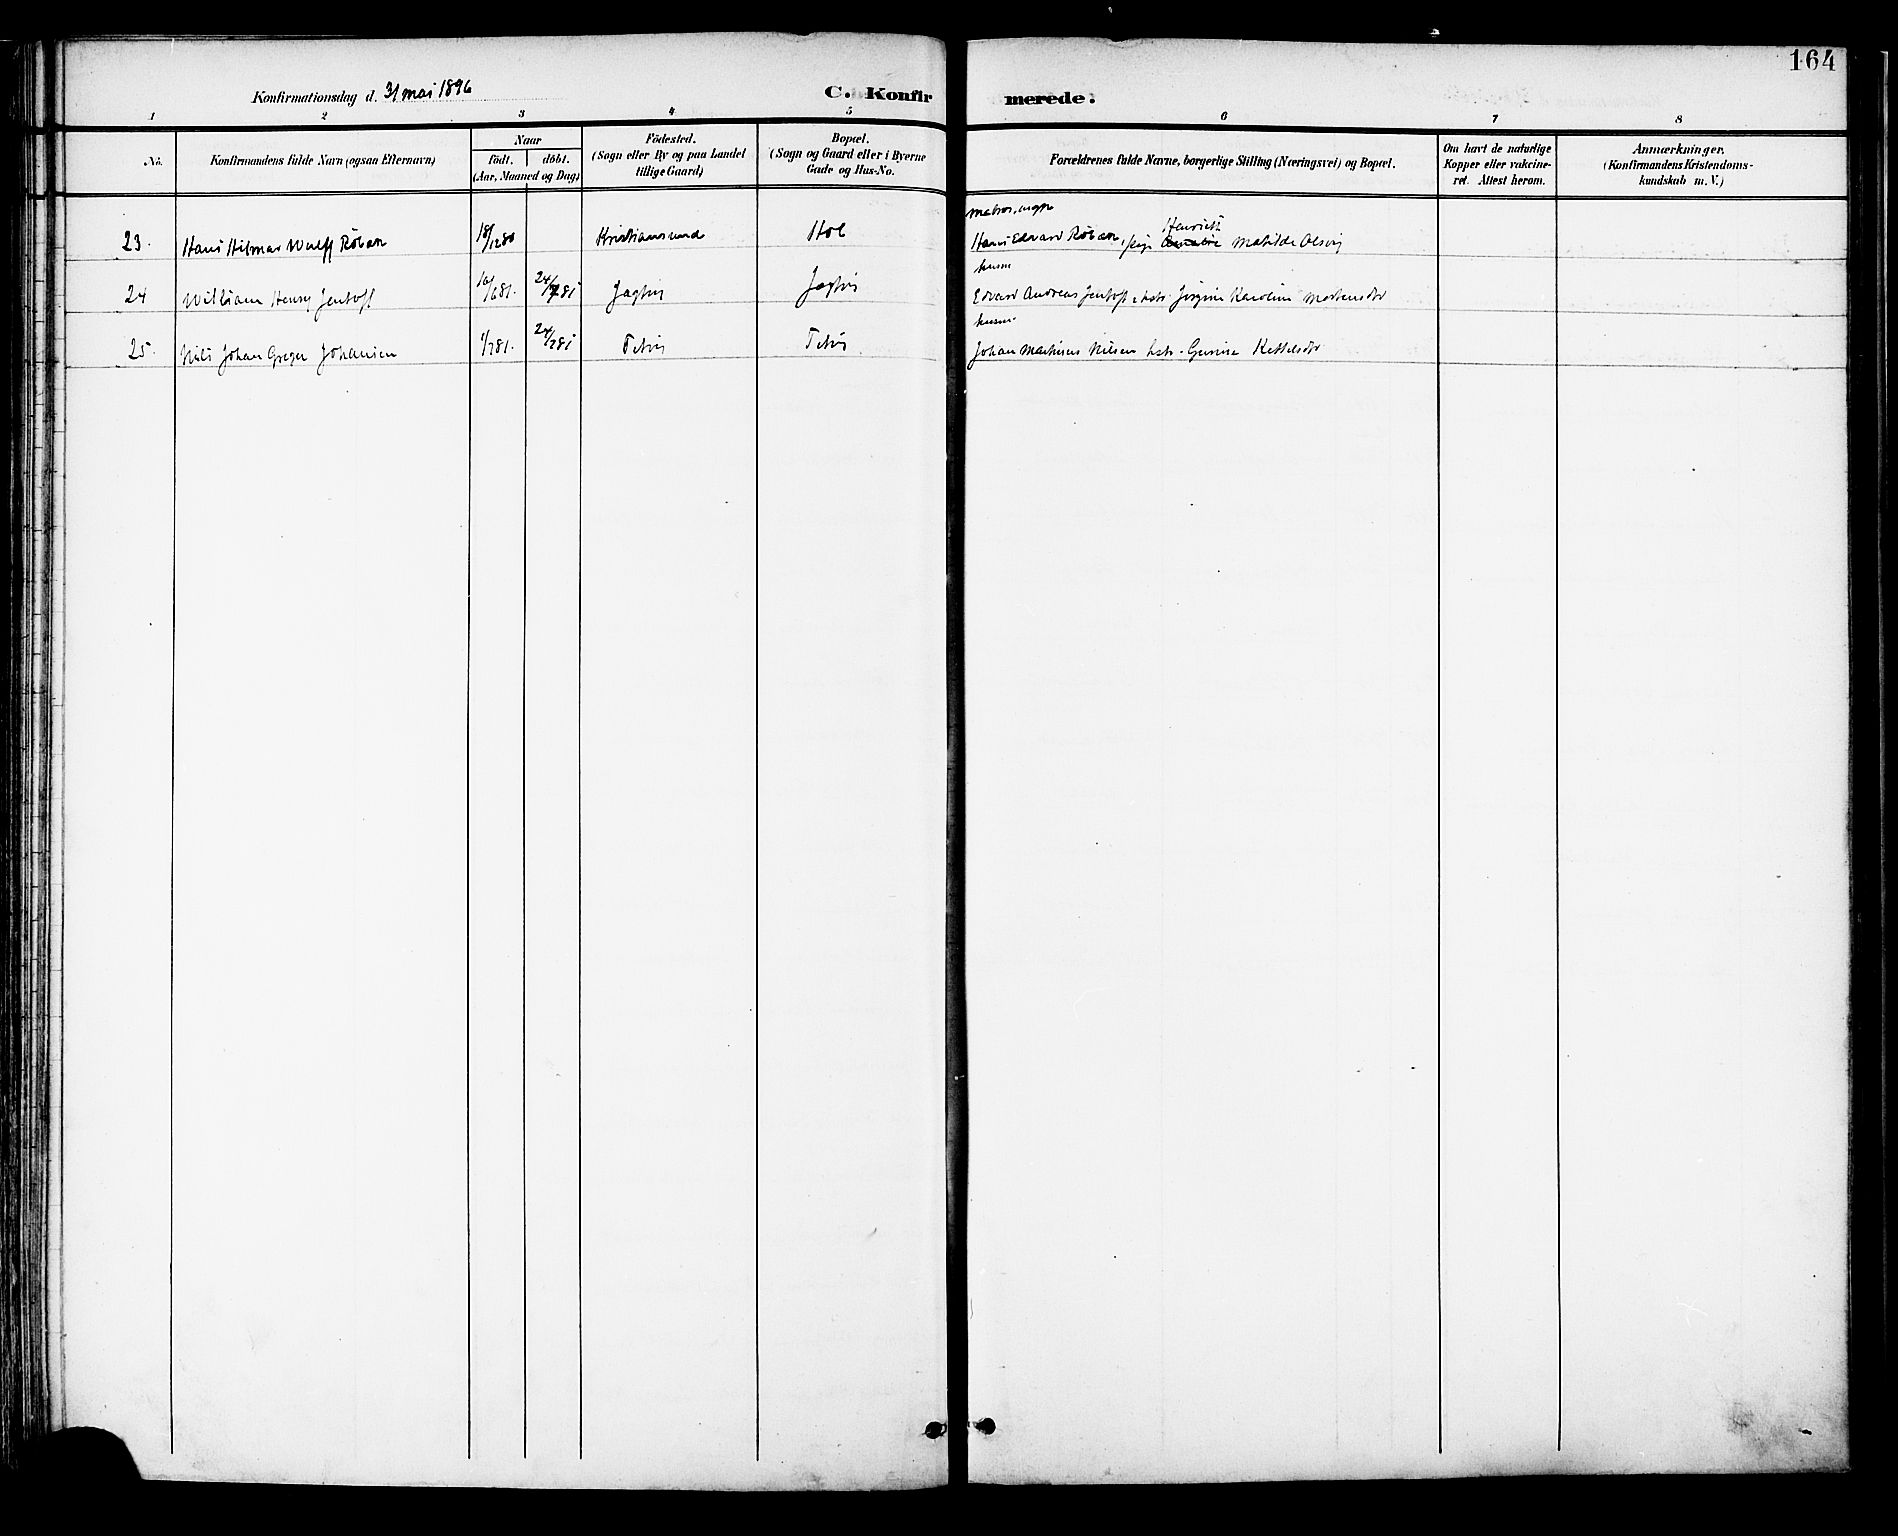 164
Konfirmationsdag d. 31 mai 1896
C. Konfirmerede.
1 2 3 4 5 6 7 8
No. Konfirmandens fulde Navn (ogsaa Efternavn) Naar födt. döbt. (Aar, Maaned og Dag) Födested. (Sogn eller By og paa Landet tillige Gaard) Bopæl. (Sogn og Gaard eller i Byerne Gade og Hus-No. Forældrenes fulde Navne, borgerlige Stilling (Næringsvei) og Bopæl. Om havt de naturlige Kopper eller vakcineret. Attest herom. Anmærkninger. (Konfirmandens Kristendomskundskab m. V.)
matros, ungk
23. Hans Hilmar Wulff 18/12 80 Kristiansund Hol Hans Edvard, pige Henriette Matilde
husm
24 William Henry Jentoft 16/6 81. 24/7 81 Edvard Andreas Jentoft hstr. Jørgine Karoline Mortensdtr
husm.
25. Nils Johan Greger Johansen 1/7 81. 24/7 81 Johan Martinus Nilsen hstr. Kettelsdtr